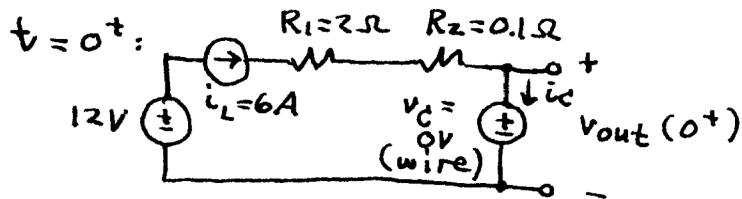 t = 0⁺:
R₁=2Ω
R₂=0.1Ω
+
→
12V
±
i_L=6A
v_c=
0V
(wire)
±
↓ i_c
v_out (0⁺)
−